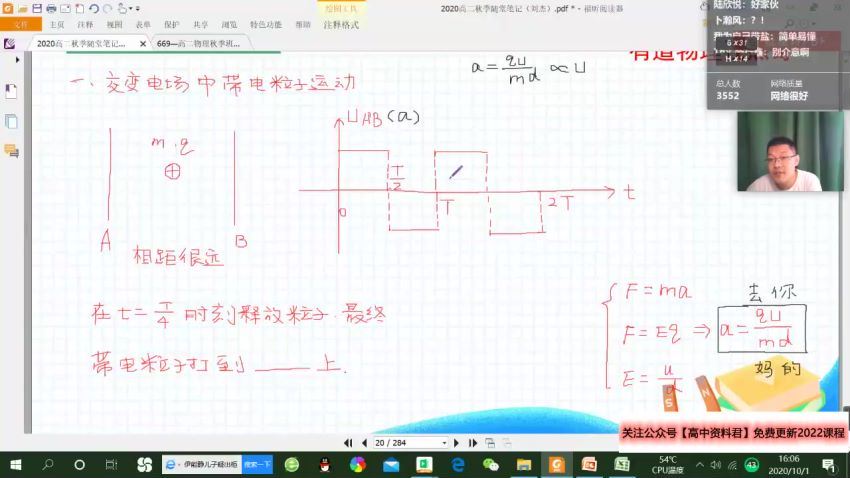 绘图工具
2020高二秋季随堂笔记（刘杰）.pdf * - 福昕阅读器
文件
主页
注释
视图
表单
保护
共享
浏览
特色功能
帮助
注释格式
2020高二秋季随堂笔记...
669—高二物理秋季班...
陆欣悦：好家伙
卜瀚风：？！
G x31
H x14
别介意啊
总人数
3552
网络质量
网络很好
一、交变电场中带电粒子运动
a = qU/md ∝ U
m.q
⊕
A
B
相距很远
U AB (a)
T/2
0
T
2T
t
在 t = T/4 时刻释放粒子.最终
带电粒子打到 ____ 上.
F = ma
F = Eq ⇒ a = qU/md
E = u/d
去你
妈的
S
N
关注公众号【高中资料君】免费更新2022课程
20 / 284
搜索一下
54°C
CPU温度
43
16:06
2020/10/1